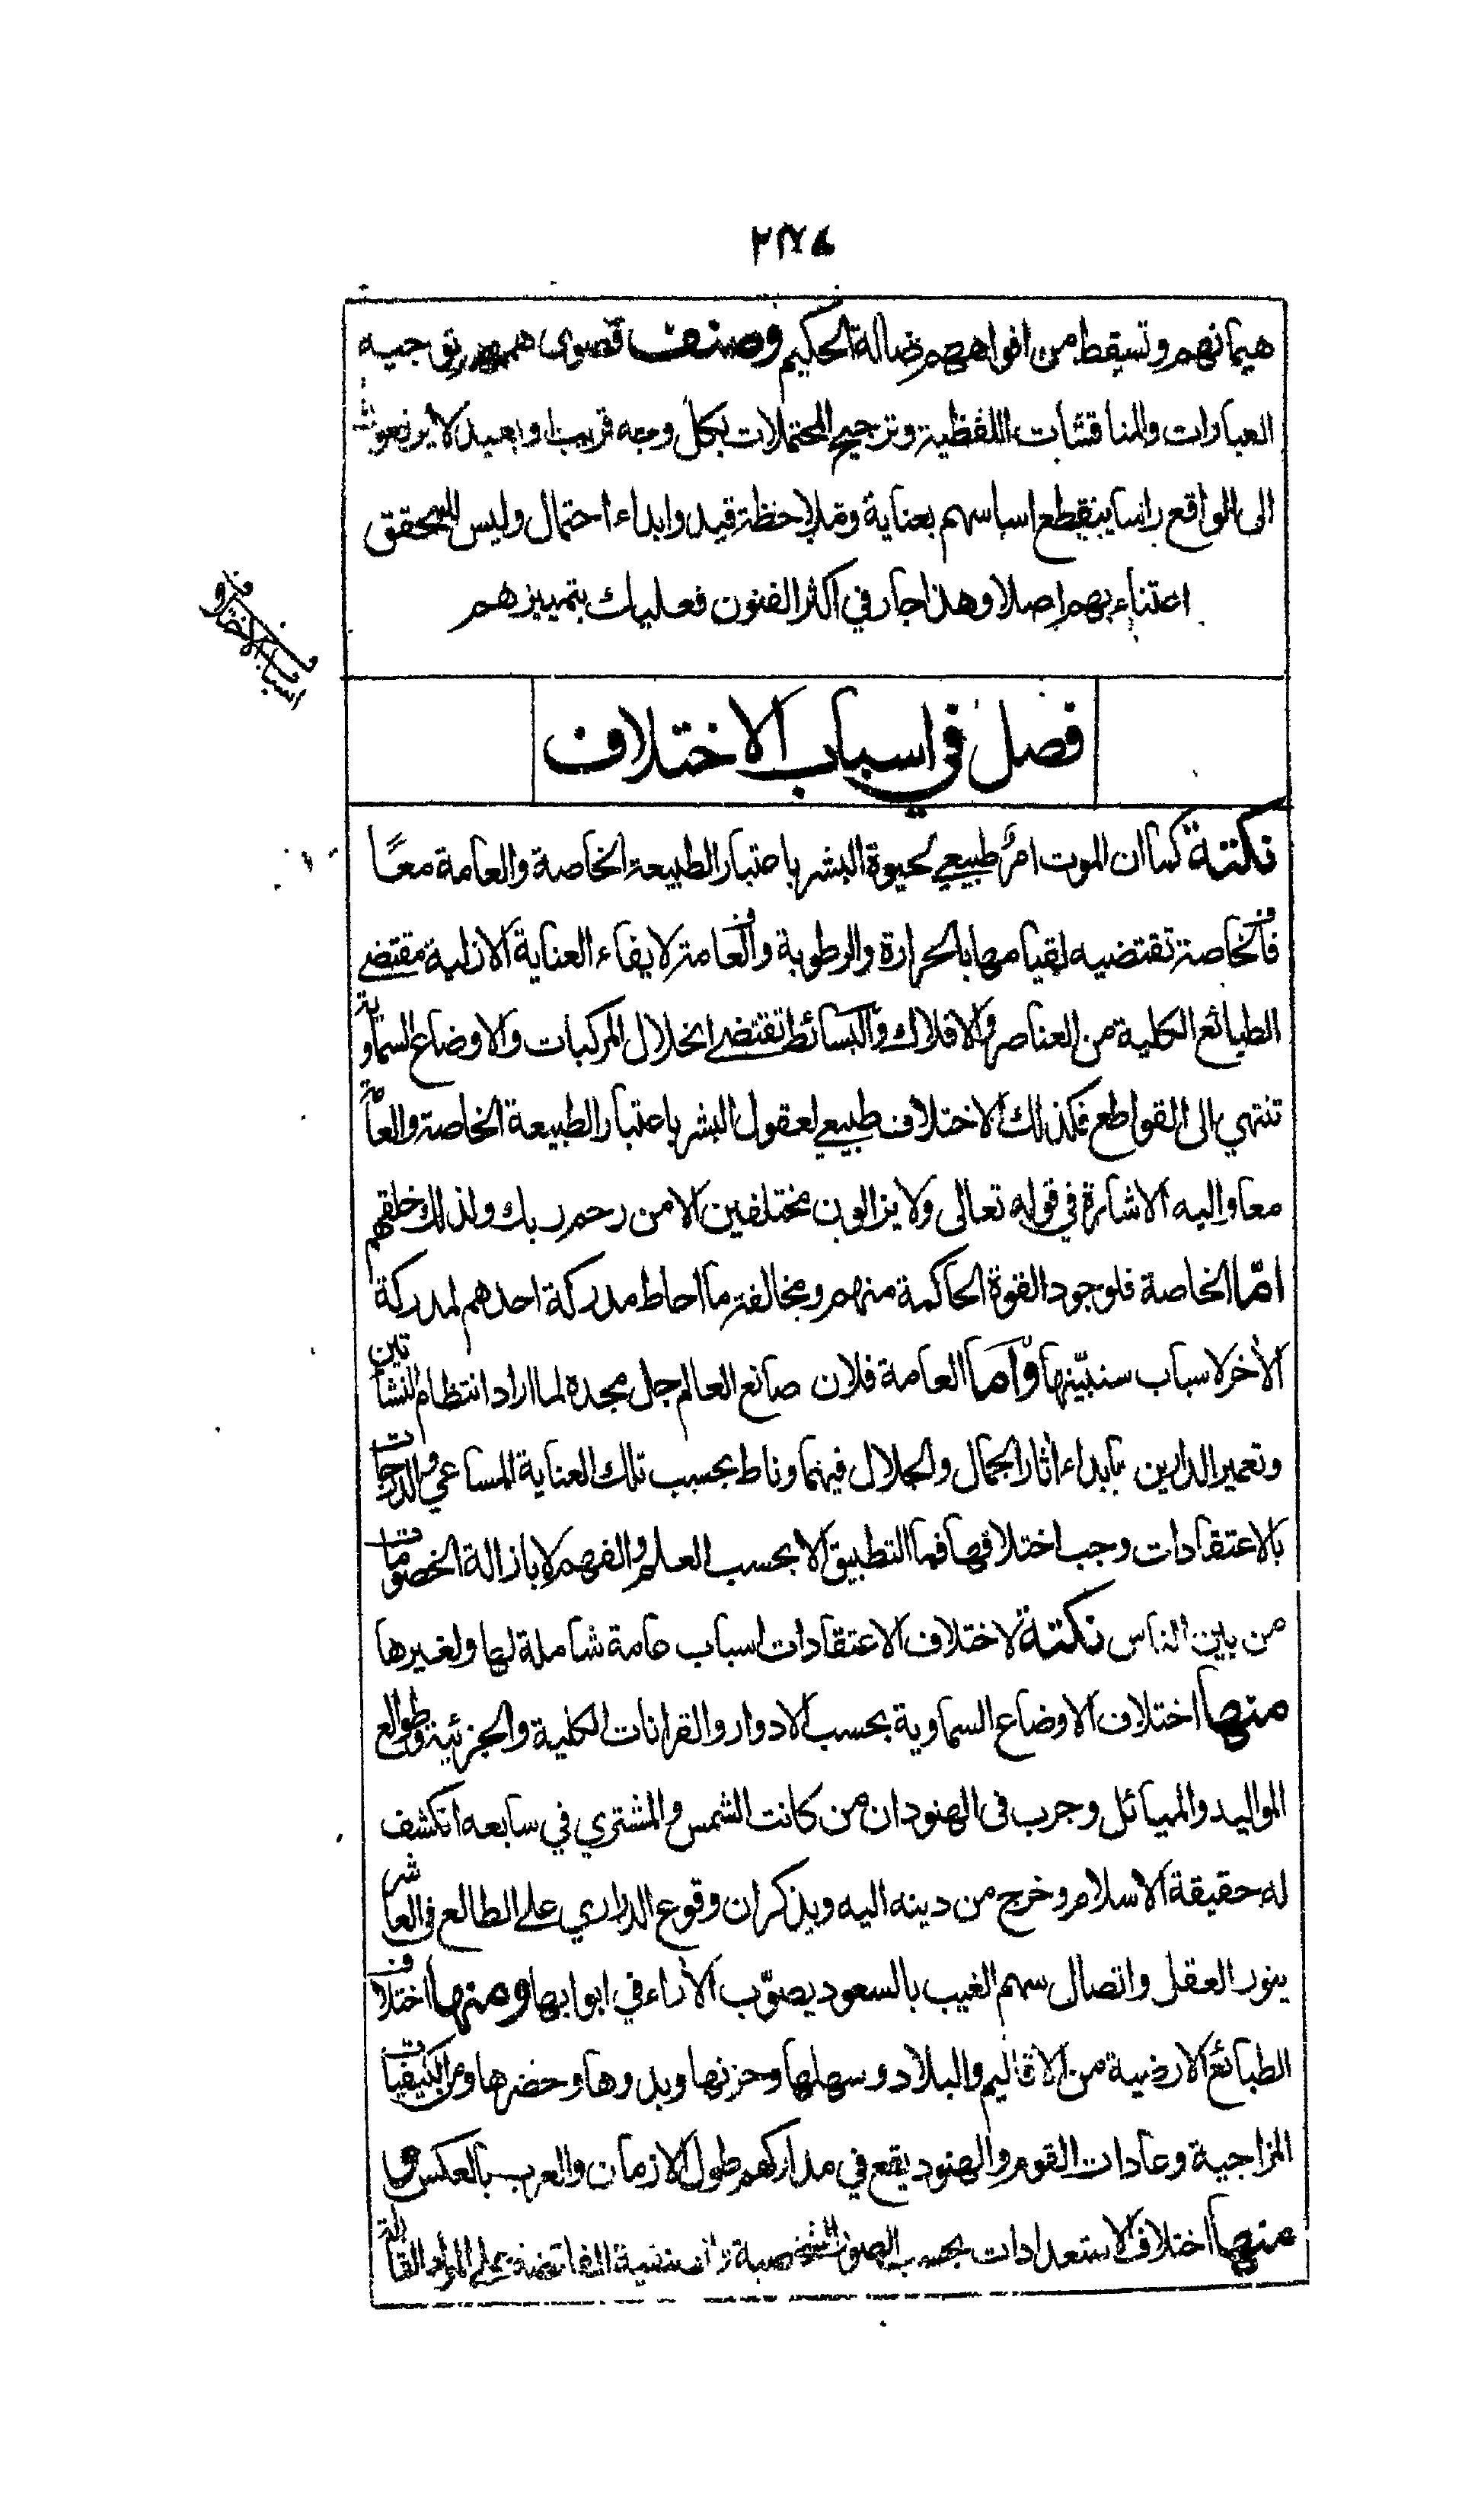 هيمانهم وتسقط من افواههم ضالة الحكيم وصنف قصوى هممهم توجيه
العبارات والمناقشات اللفظية وترجيح المحتملات بكل وجه قريب او بعيد لا يرفعون
الى الواقع راسا ينقطع اساسهم بعناية وملاحظة قيد وابداء احتمال وليس للمحقق
اعتناء بهم اصلا وهذا جار في اكثر الفنون فعليك بتمييزهم
اسباب الاختلاف
فصل في اسباب الاختلاف
نكتة كما ان الموت امر طبيعي لحيوة البشر باعتبار الطبيعة الخاصة والعامة معًا
فالخاصة تقتضيه لقيامها بالحرارة والرطوبة والعامة لايفاء العناية الازلية مقتضى
الطبائع الكلية من العناصر والافلاك والبسائط تقتضي انحلال المركبات والاوضاع السماوية
تنتهي الى القواطع فكذلك الاختلاف طبيعي لعقول البشر باعتبار الطبيعة الخاصة والعامة
معا واليه الاشارة في قوله تعالى ولا يزالون مختلفين الا من رحم ربك ولذلك خلقهم
امّا الخاصة فلوجود القوة الحاكمة منهم ومخالفة ما احاط مدركة احدهم لمدركة
الأخر لاسباب سنبيّنها وأما العامة فلان صانع العالم جل مجده لما اراد انتظام النشأتين
وتعمير الدارين بابداء أثار الجمال والجلال فيهما وناط بحسب تلك العناية المساعي والدرجات
بالاعتقادات وجب اختلافها فما التطبيق الا بحسب العلم والفهم لا بازالة الخصومات
من بين الناس نكتة لاختلاف الاعتقادات اسباب عامة شاملة لها ولغيرها
منها اختلاف الاوضاع السماوية بحسب الادوار والقرانات الكلية والجزئية وطوالع
المواليد والمسائل وجرب في الهنود ان من كانت الشمس والمشتري في سابعه انكشف
له حقيقة الاسلام وخرج من دينه اليه ويذكر ان وقوع الدراري على الطالع في العاشر
ينور العقل واتصال سهم الغيب بالسعود يصوّب الأراء في ابوابها ومنها اختلاف
الطبائع الارضية من الاقاليم والبلاد وسهلها وحزنها وبدوها وحضرها ومن الكيفيات
المزاجية وعادات القوم والهنود يقع في مداركهم طول الازمان والعرب بالعكس و
منها اختلاف الاستعدادات بحسب الصور الشخصية الفائضة على المواد القابلة